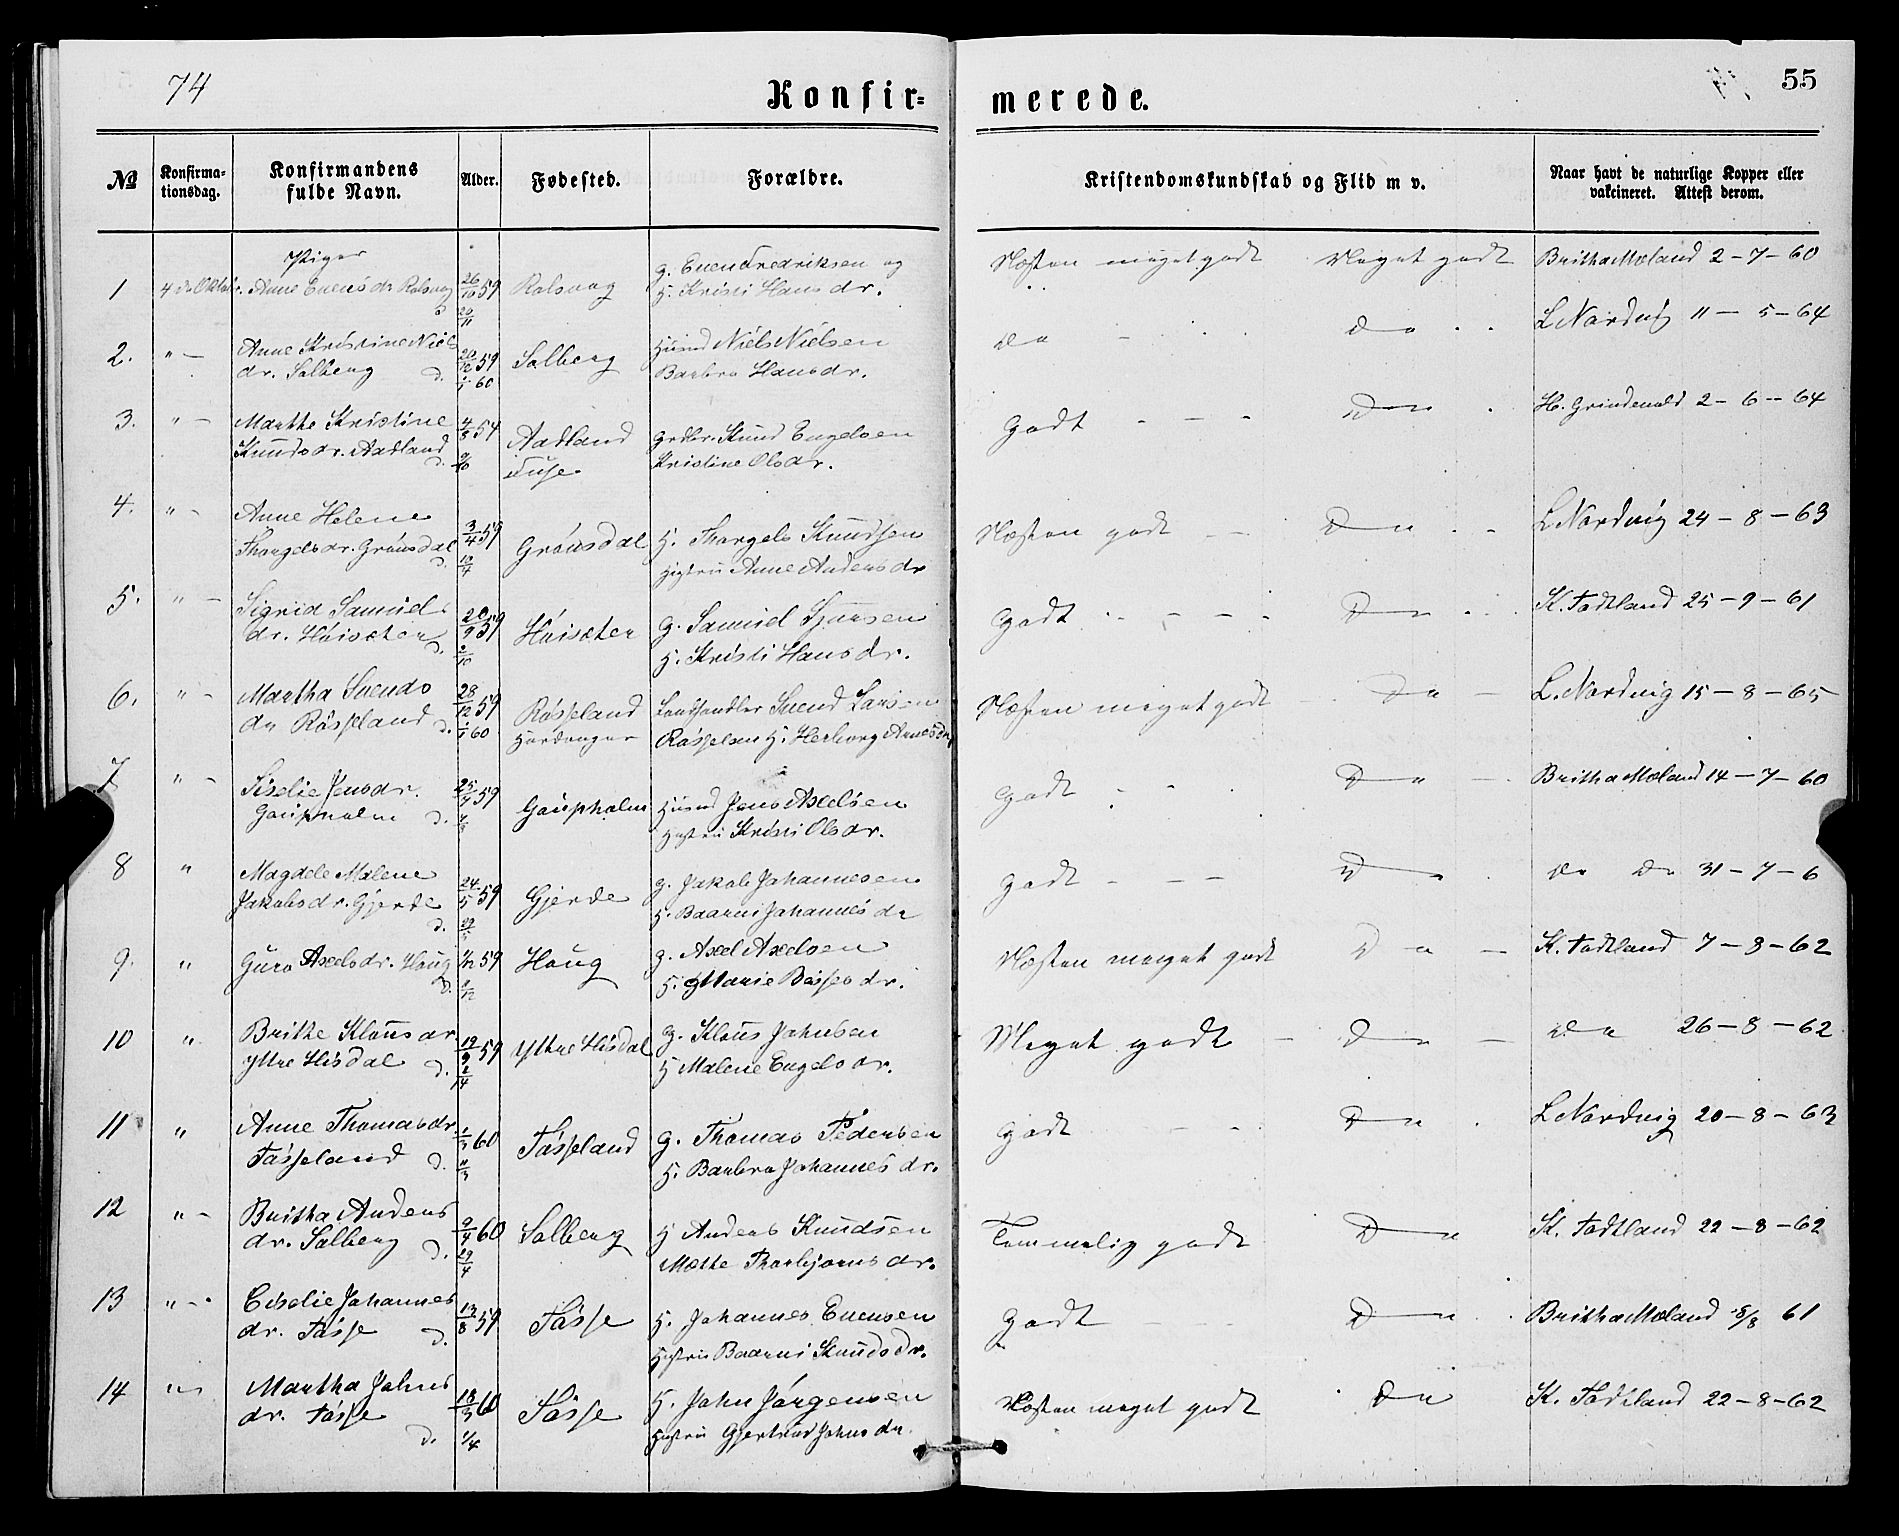 74
Konfir=
merede.
55
No
Konfirma-
tionsdag.
Konfirmandens
fulde Navn.
Alder.
Fødested.
Forældre.
Kristendomskundskab og Flid m v.
Naar havt de naturlige Kopper eller
vakcineret. Attest derom.
Piger
1 4de Oktobr. Anne Evensdr Rolsvog 26/10 59 Rolsvog g. Even Fredriksen og
H. Kristi Hansdr.
Næsten meget godt Meget godt Britha Mæland 2-7-60
2. " - Anne Kristine Niels
dr. Solberg d. 20/12 59 Solberg Husmd Niels Nielsen
Barbra Hansdr.
Do Do L Nordvig 11-5-64
3. " - Marthe Kristine
Knudsdr. Aadland d. 4/8 54 Aadland
Fuse
grdbr. Knud Engelsen
Kristine Olsdr.
Godt Do H. Grindevold 2-6-64
4. " - Anne Helene
Thorgelsdr. Grönsdal d. 3/4 59 Grönsdal H. Thorgels Knudsen
Hustru Anne Andersdr
Næsten godt Do L Nordvig 24-8-63
5. " - Sigrid Samuels
dr. Höisæter d. 20/9 59 Höisæter g. Samuel Sjursen
H. Kristi Hansdr.
Godt Do K. Todtland 25-9-61
6. " - Martha Svends
dr Rösseland d. 28/12 59 Rösseland
Hardanger
Landhandler Svend Larsen
H. Herborg Arnesdr
Næsten meget godt Do L. Nordvig 15-8-65
7 " - Siselie Jensdr.
Gaupholm d. 25/7 59 Gaupholm Husmd Jens Axelsen
Hustru Kristi Olsdr.
Godt Do Britha Mæland 14-7-60
8 " Magdele Malene
Jakobsdr. Gjerde d. 24/5 59 Gjerde g. Jakob Johannesen
H. Baarni Johannesdr
Godt Do Do Do 31-7-6
9. " Guro Axelsdr. Houg d. 1/12 59 Houg g. Axel Axelsen
H. Marie
Næsten meget godt Do K. Todtland 7-8-62
10 " Brithe Klausdr
Ytre Hisdal d. 19/9 59 Ytre Hisdal g. Klaus Johnsen
H Malene Engelsdr.
Meget godt Do Do 26-8-62
11 " Anne Thomasdr.
Tösseland d. 60 Tösseland g. Thomas Pedersen
H. Barbra Johannesdr.
Godt Do L Nordvig 20-8-63
12 " - Britha Anders
dr. Solberg d. 9/4 60 Solberg H Anders Knudsen
Mette Thorbjørnsdr.
Temmelig godt Do K. Todtland 22-8-62
13 " - Ceselie Johannes
dr. Tösse d. 13/8 59 Tösse H. Johannes Evensen
Hustru Baarni Knudsdr.
Godt Do Britha Mæland 5/8 61
14 " Martha Johns
dr. Tösse d. 18/3 60 Tösse H. John Jörgensen
Hustru Gjertrud Johnsdr
Næsten meget godt Do K. Todtland 22-8-62